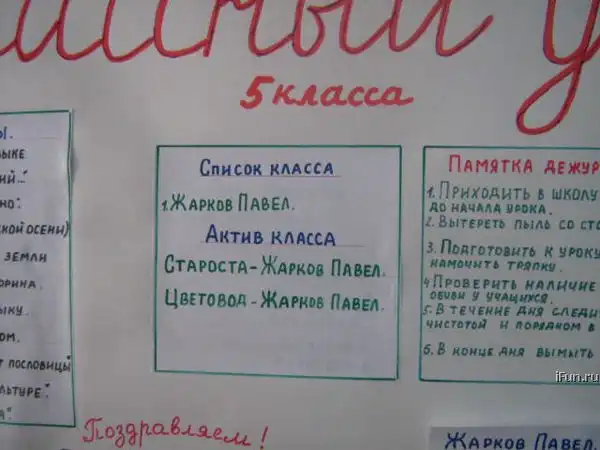 5 класса
Ы.
ЗЫКЕ
ИЙ..."
НО".
СКОЙ ОСЕНИ)
ЗЕМЛИ
ОРИНА.
ЫКУ.
ОМ.
Т ПОСЛОВИЦЫ
ЛЬТУРЕ".
А".
Список класса
1. Жарков Павел.
Актив класса
Староста - Жарков Павел.
Цветовод - Жарков Павел.
Памятка дежур
1. Приходить в школу
до начала урока.
2. Вытереть пыль со сто
3. Подготовить к уроку
намочить тряпку.
4. Проверить наличие
обуви у учащихся.
5. В течение дня следи
чистотой и порядком в
6. В конце дня вымыть
iFun.ru
Поздравляем!
Жарков Павел.